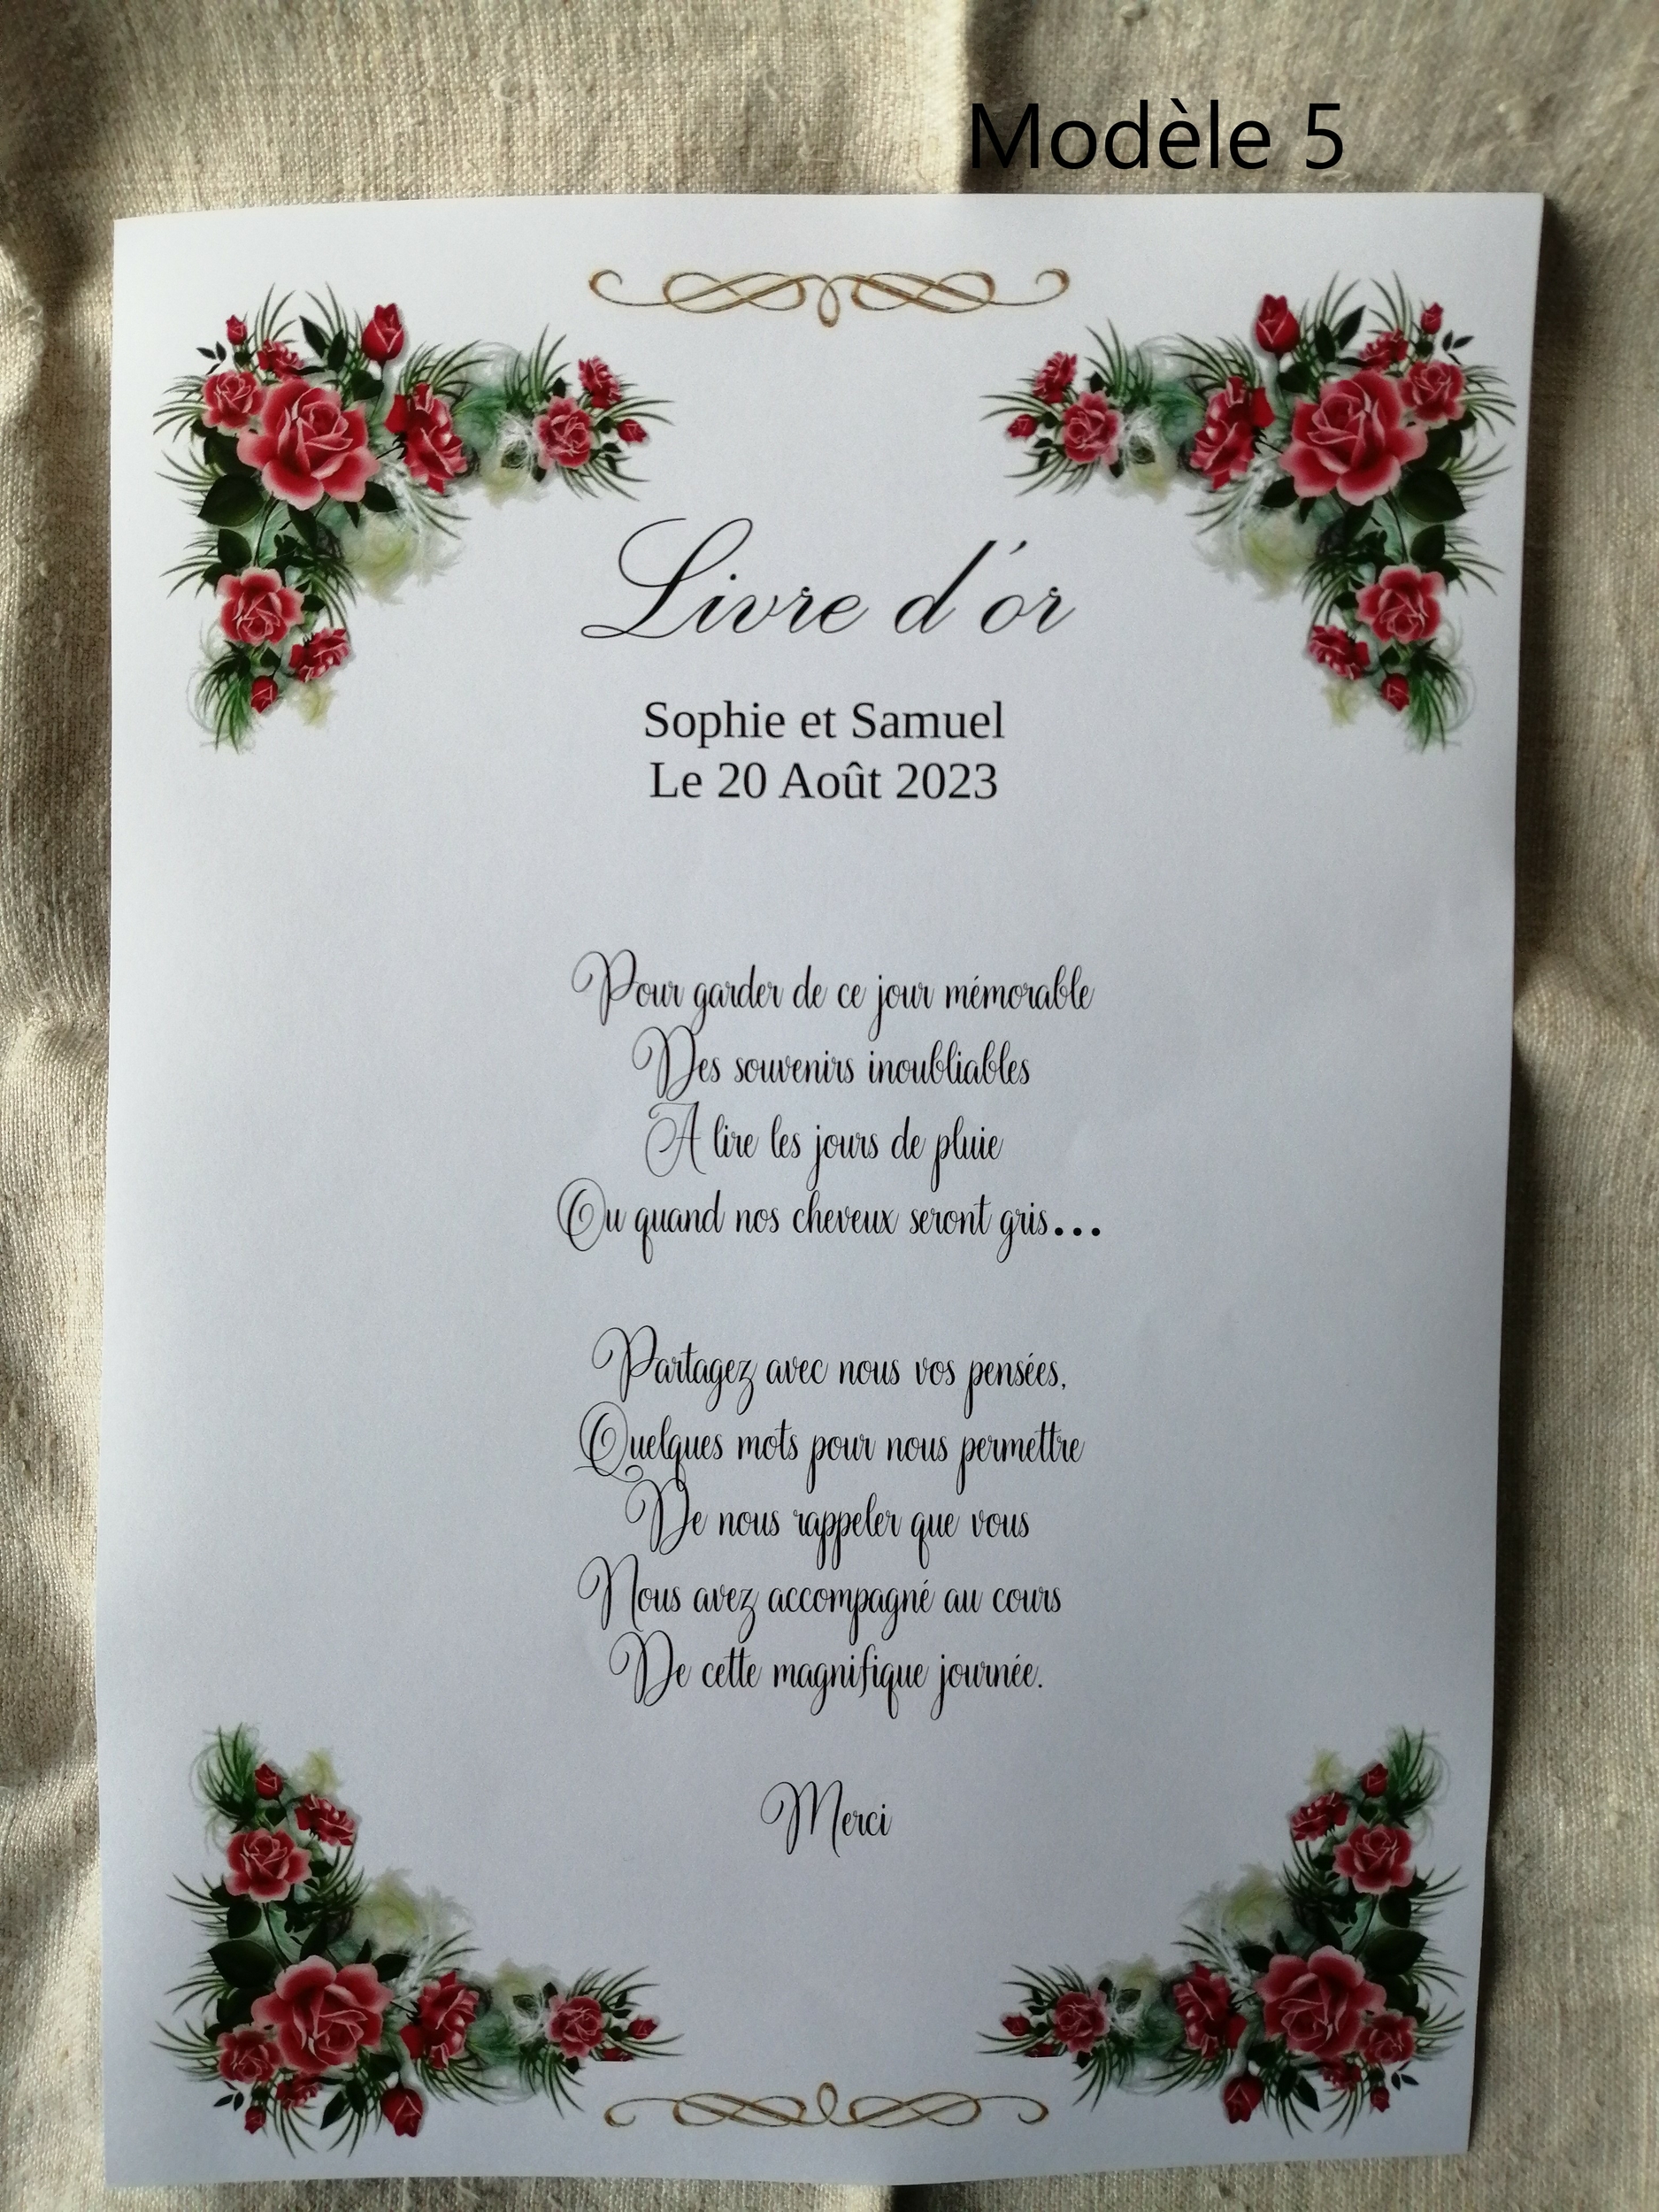 Modèle 5
Livre d'or
Sophie et Samuel
Le 20 Août 2023
Pour garder de ce jour mémorable
Des souvenirs inoubliables
A lire les jours de pluie
Ou quand nos cheveux seront gris...
Partagez avec nous vos pensées,
Quelques mots pour nous permettre
De nous rappeler que vous
Nous avez accompagné au cours
De cette magnifique journée.
Merci